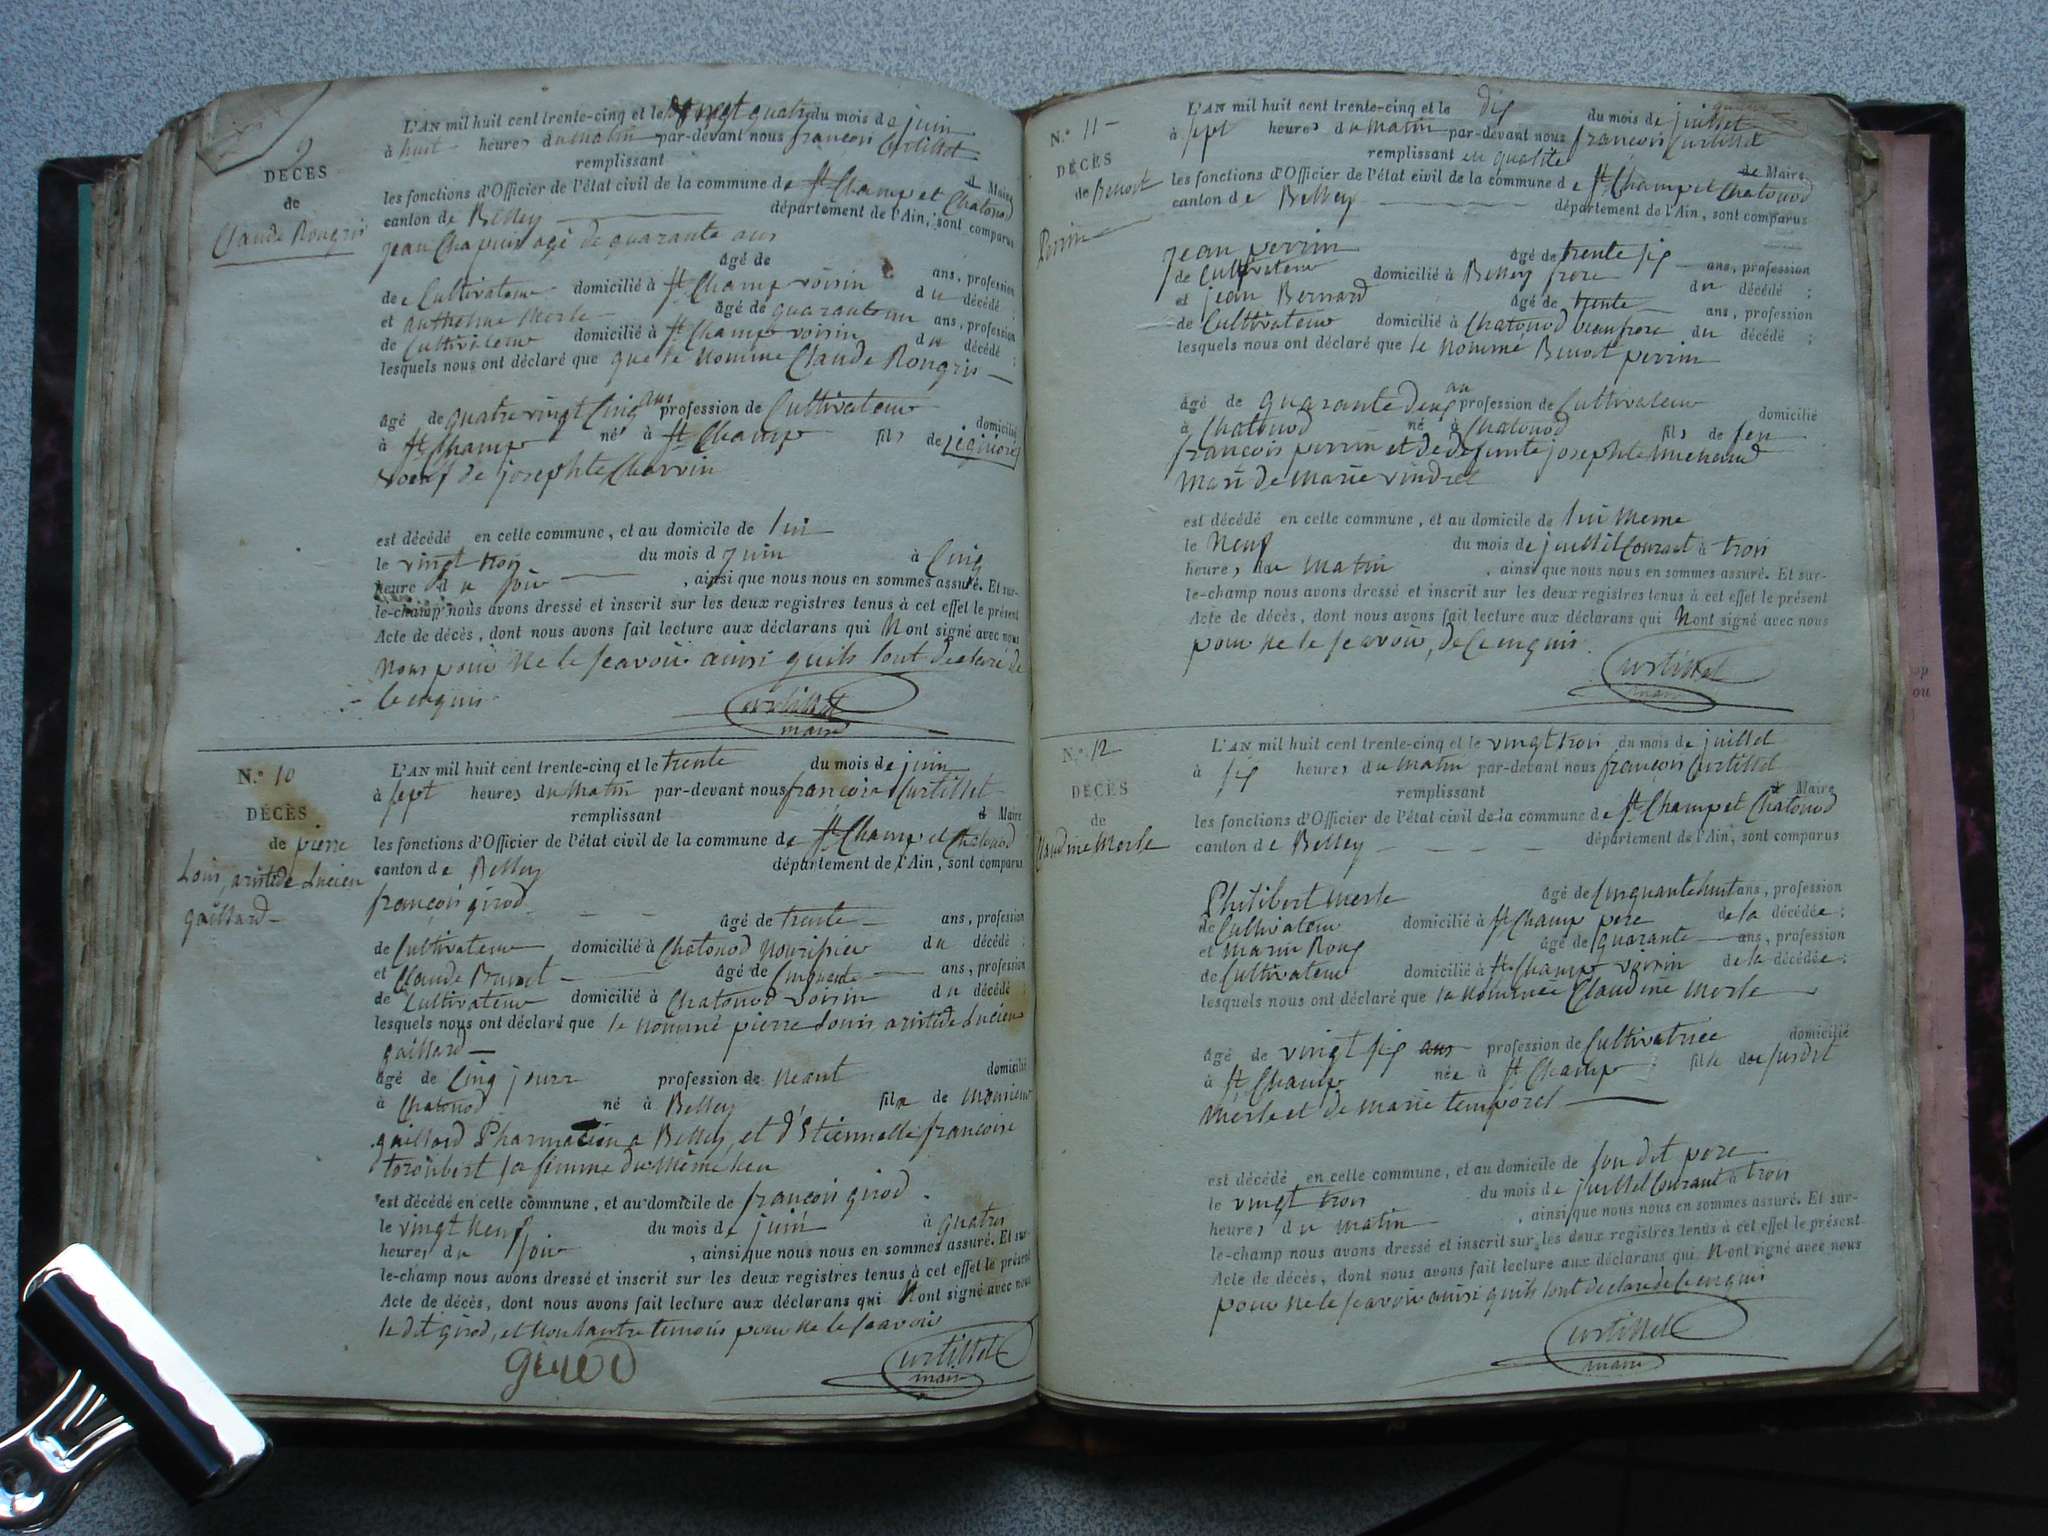 9
DÉCÈS
de
Claude Rougris
L'AN mil huit cent trente-cinq et le vingt quatre du mois de juin
à huit heures du matin par-devant nous françois Curtillet
remplissant
d Maire
les fonctions d'Officier de l'état civil de la commune de St Champ et Chatonod
canton de Belley département de l'Ain, sont comparus
jean Chapuis agé de quarante ans
âgé de ans, profession
de Cultivateur domicilié à St Champ voisin du décédé ;
et anthelme Merle âgé de quarante un ans, profession
de Cultivateur domicilié à St Champ voisin du décédé ;
lesquels nous ont déclaré que que le nommé Claude Rougris
âgé de quatre vingt Cinq ans profession de Cultivateur domicilié
à St Champ né à St Champ fils de
voeuf de josephte Charvin
est décédé en cette commune, et au domicile de lui
le vingt trois du mois d juin à Cinq
heure du soir, ainsi que nous nous en sommes assuré. Et sur-
le-champ nous avons dressé et inscrit sur les deux registres tenus à cet effet le présent
Acte de décès, dont nous avons fait lecture aux déclarans qui N ont signé avec nous
nous pour ne le scavoir ainsi quils lont declaré de
ce enquis
Curtillet
maire
N.° 10
DÉCÈS
de pierre
Louis, aristide Lucien
gaillard
L'AN mil huit cent trente-cinq et le trente du mois de juin
à sept heures du matin par-devant nous françois Curtillet
remplissant
d Maire
les fonctions d'Officier de l'état civil de la commune de St Champ et Chatonod
canton de Belley département de l'Ain, sont comparus
françois girod
âgé de trente ans, profession
de Cultivateur domicilié à Chatonod nourisier du décédé ;
et Claude âgé de Cinquante ans, profession
de Cultivateur domicilié à Chatonod voisin du décédé ;
lesquels nous ont déclaré que le nommé pierre Louis aristide Lucien
gaillard
âgé de Cinq jours profession de neant domicilié
à Chatonod né à Belley fils de monsieur
gaillard Pharmacien a Belley, et d'Etiennette françoise
sa femme du même lieu
est décédé en cette commune, et au domicile de françois girod.
le vingt neuf du mois de juin à quatre
heures du soir, ainsi que nous nous en sommes assuré. Et sur-
le-champ nous avons dressé et inscrit sur les deux registres tenus à cet effet le présent
Acte de décès, dont nous avons fait lecture aux déclarans qui N ont signé avec nous
le dit girod, et non lautre temoins pour ne le scavoir
girod
Curtillet
maire
N.° 11
DÉCÈS
de Benoit
Perrin
L'AN mil huit cent trente-cinq et le dix du mois de juillet
à sept heures du matin par-devant nous françois Curtillet
remplissant en qualité
de Maire
les fonctions d'Officier de l'état civil de la commune de St Champ et Chatonod
canton de Belley département de l'Ain, sont comparus
jean perrin âgé de trente six ans, profession
de Cultivateur domicilié à Belley frere du décédé ;
et jean Bernard âgé de trente ans, profession
de Cultivateur domicilié à Chatonod beaufrere du décédé ;
lesquels nous ont déclaré que le nommé Benoit perrin
âgé de quarante deux an profession de Cultivateur domicilié
à Chatonod né à Chatonod fils de feu
francois perrin et de defunte josephte
mari de marie vindret
est décédé en cette commune, et au domicile de lui meme
le neuf du mois de juillet Courant à trois
heures du matin, ainsi que nous nous en sommes assuré. Et sur-
le-champ nous avons dressé et inscrit sur les deux registres tenus à cet effet le présent
Acte de décès, dont nous avons fait lecture aux déclarans qui N ont signé avec nous
pour ne le scavoir, de Ce enquis
Curtillet
maire
N.° 12
DÉCÈS
de
Claudine Merle
L'AN mil huit cent trente-cinq et le vingt trois du mois de juillet
à six heures du matin par-devant nous françois Curtillet
remplissant
d Maire
les fonctions d'Officier de l'état civil de la commune de St Champ et Chatonod
canton de Belley département de l'Ain, sont comparus
Philibert merle âgé de Cinquante huit ans, profession
de Cultivateur domicilié à St Champ pere de la décédée ;
et marin Roux âgé de quarante ans, profession
de Cultivateur domicilié à St Champ voisin de la décédée ;
lesquels nous ont déclaré que la nommée Claudine Merle
âgé de vingt six ans profession de Cultivatrice domicilié
à St Champ née à St Champ fille du susdit
Merle et de marie temporel
est décédé en cette commune, et au domicile de son dit pere
le vingt trois du mois de juillet Courant à trois
heures du matin, ainsi que nous nous en sommes assuré. Et sur-
le-champ nous avons dressé et inscrit sur les deux registres tenus à cet effet le présent
Acte de décès, dont nous avons fait lecture aux déclarans qui N ont signé avec nous
pour ne le scavoir ainsi quils lont declare de Ce enquis
Curtillet
maire